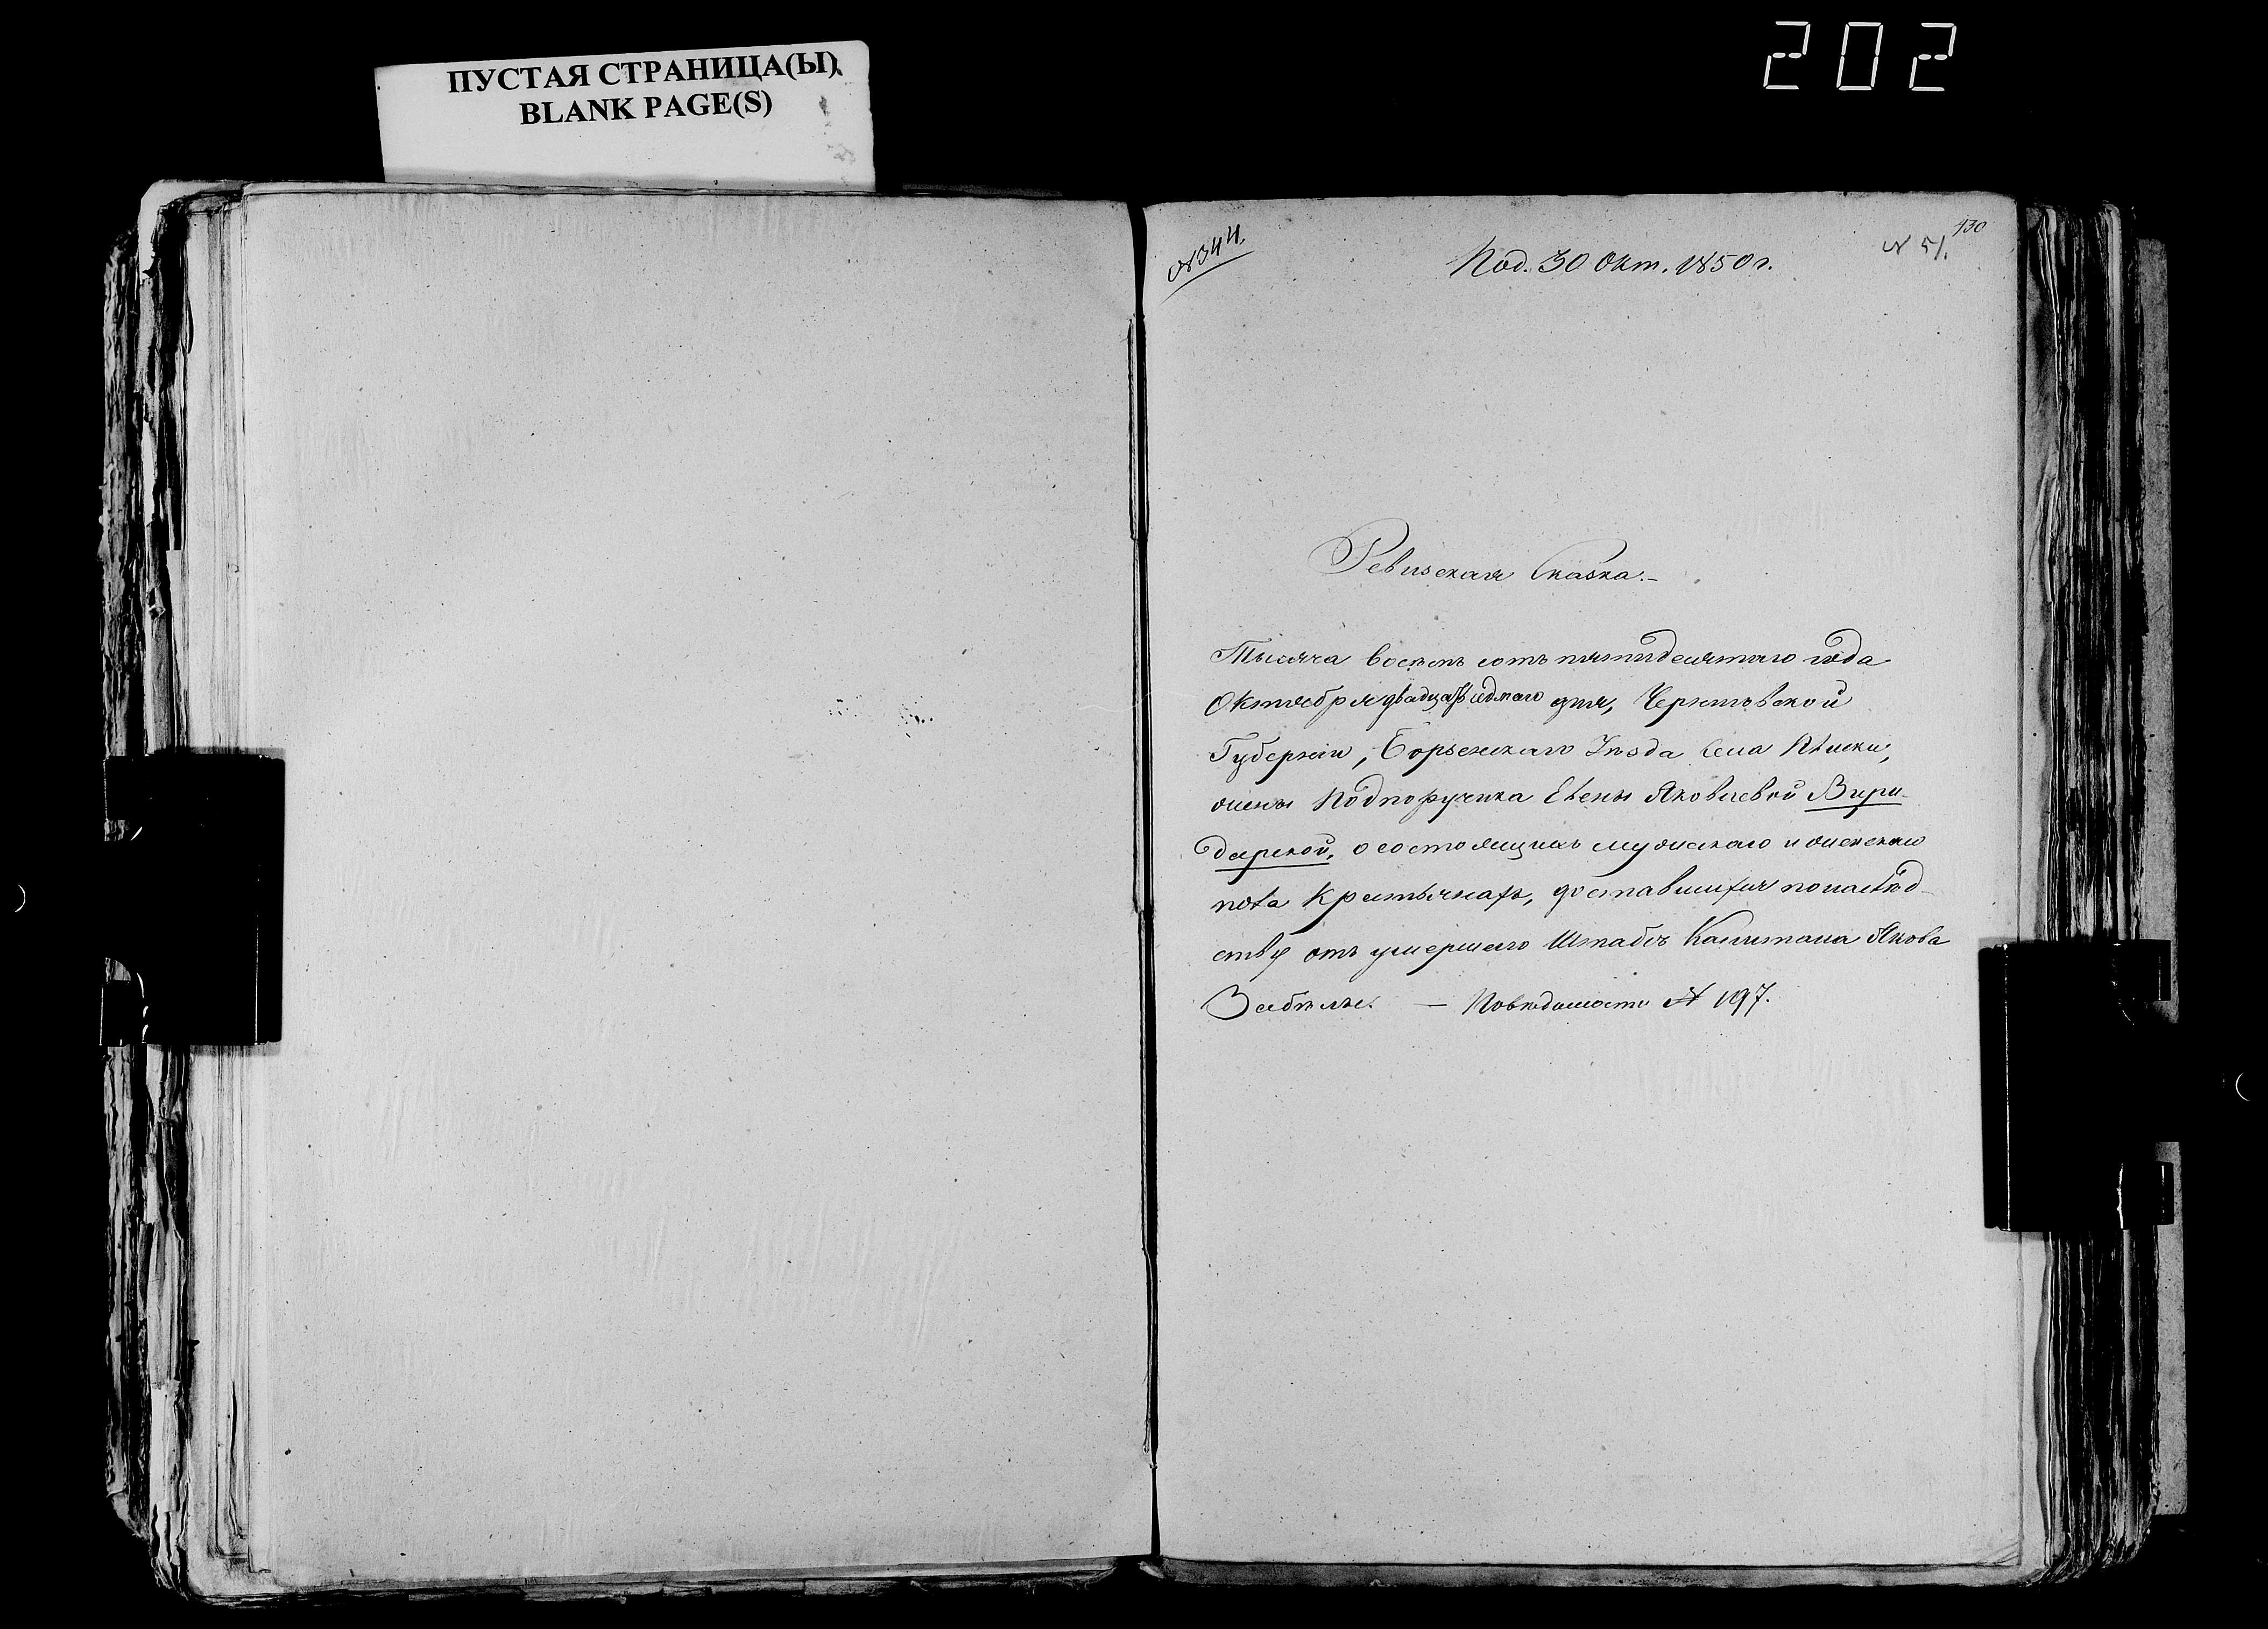 ПУСТАЯ СТРАНИЦА(Ы)
BLANK PAGE(S)
202
130
N 51.
Под. 30 Окт. 1850 г.
Ревизская Сказка.-
Тысяча восемь сотъ пятидесятаго года
Октября двадцать седмаго дня, Черниговской
Губернии, Борзенскаго Уезда села Плиски,
жены Подпоручика Елены Яковлевой Вири-
дарской, о состоящихъ мужскаго и женскаго
пола Крестьянахъ, доставшихся по наслед-
ству отъ умершаго Штабсъ Капитана Якова
Забелы. — По ведомости N 197.